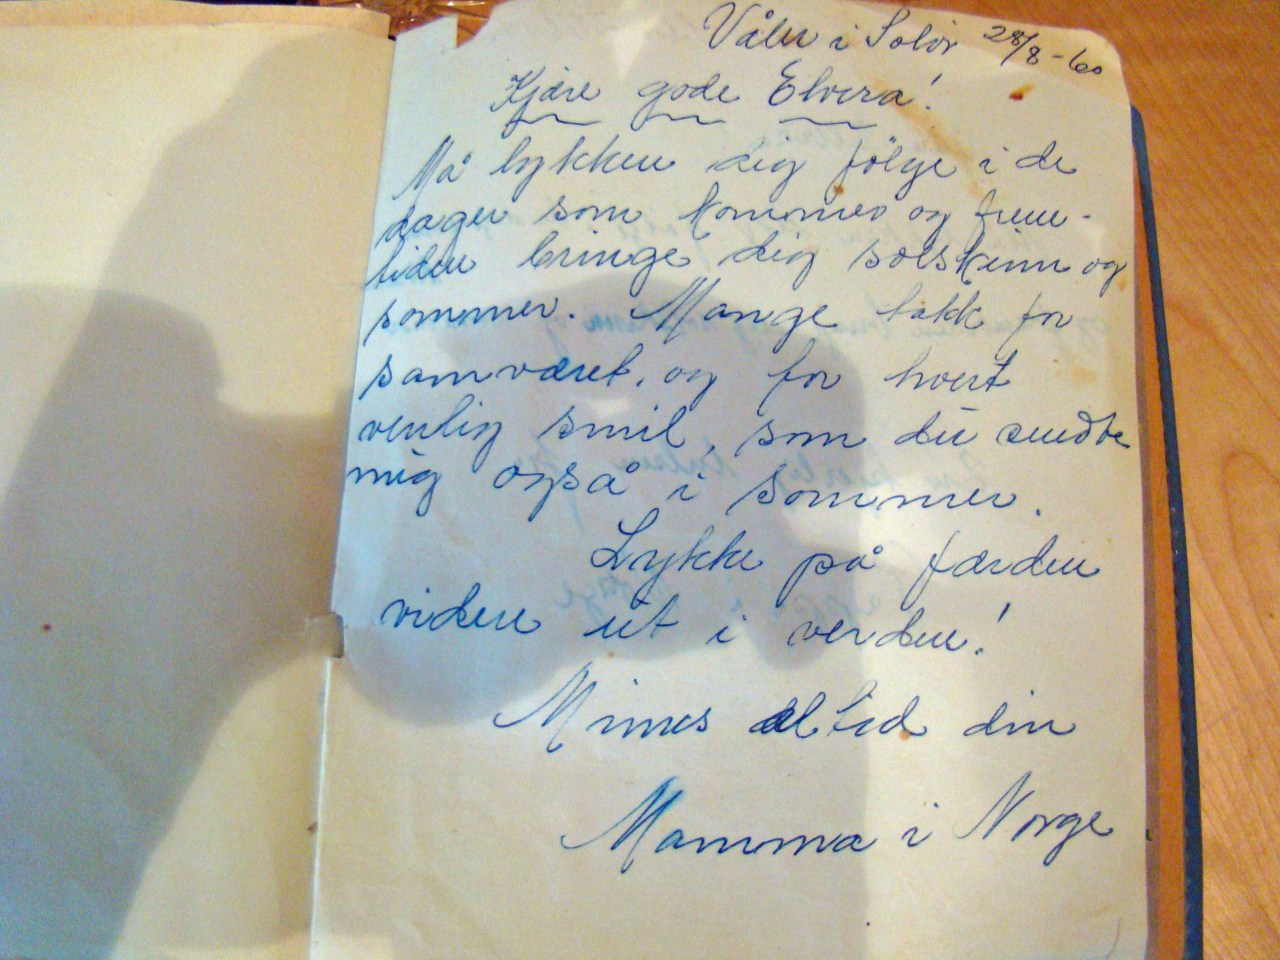 Våler i Solör 28/8-60
Kjære gode Elvera!
Må lykken dig fölge i de
dager som kommer og frem-
tiden bringe dig solskinn og
sommer. Mange takk for
samværet, og for hvert
venlig smil, som du sendte
mig også i sommer.
Lykke på færden
videre ut i verden!
Minnes altid din
Mamma i Norge